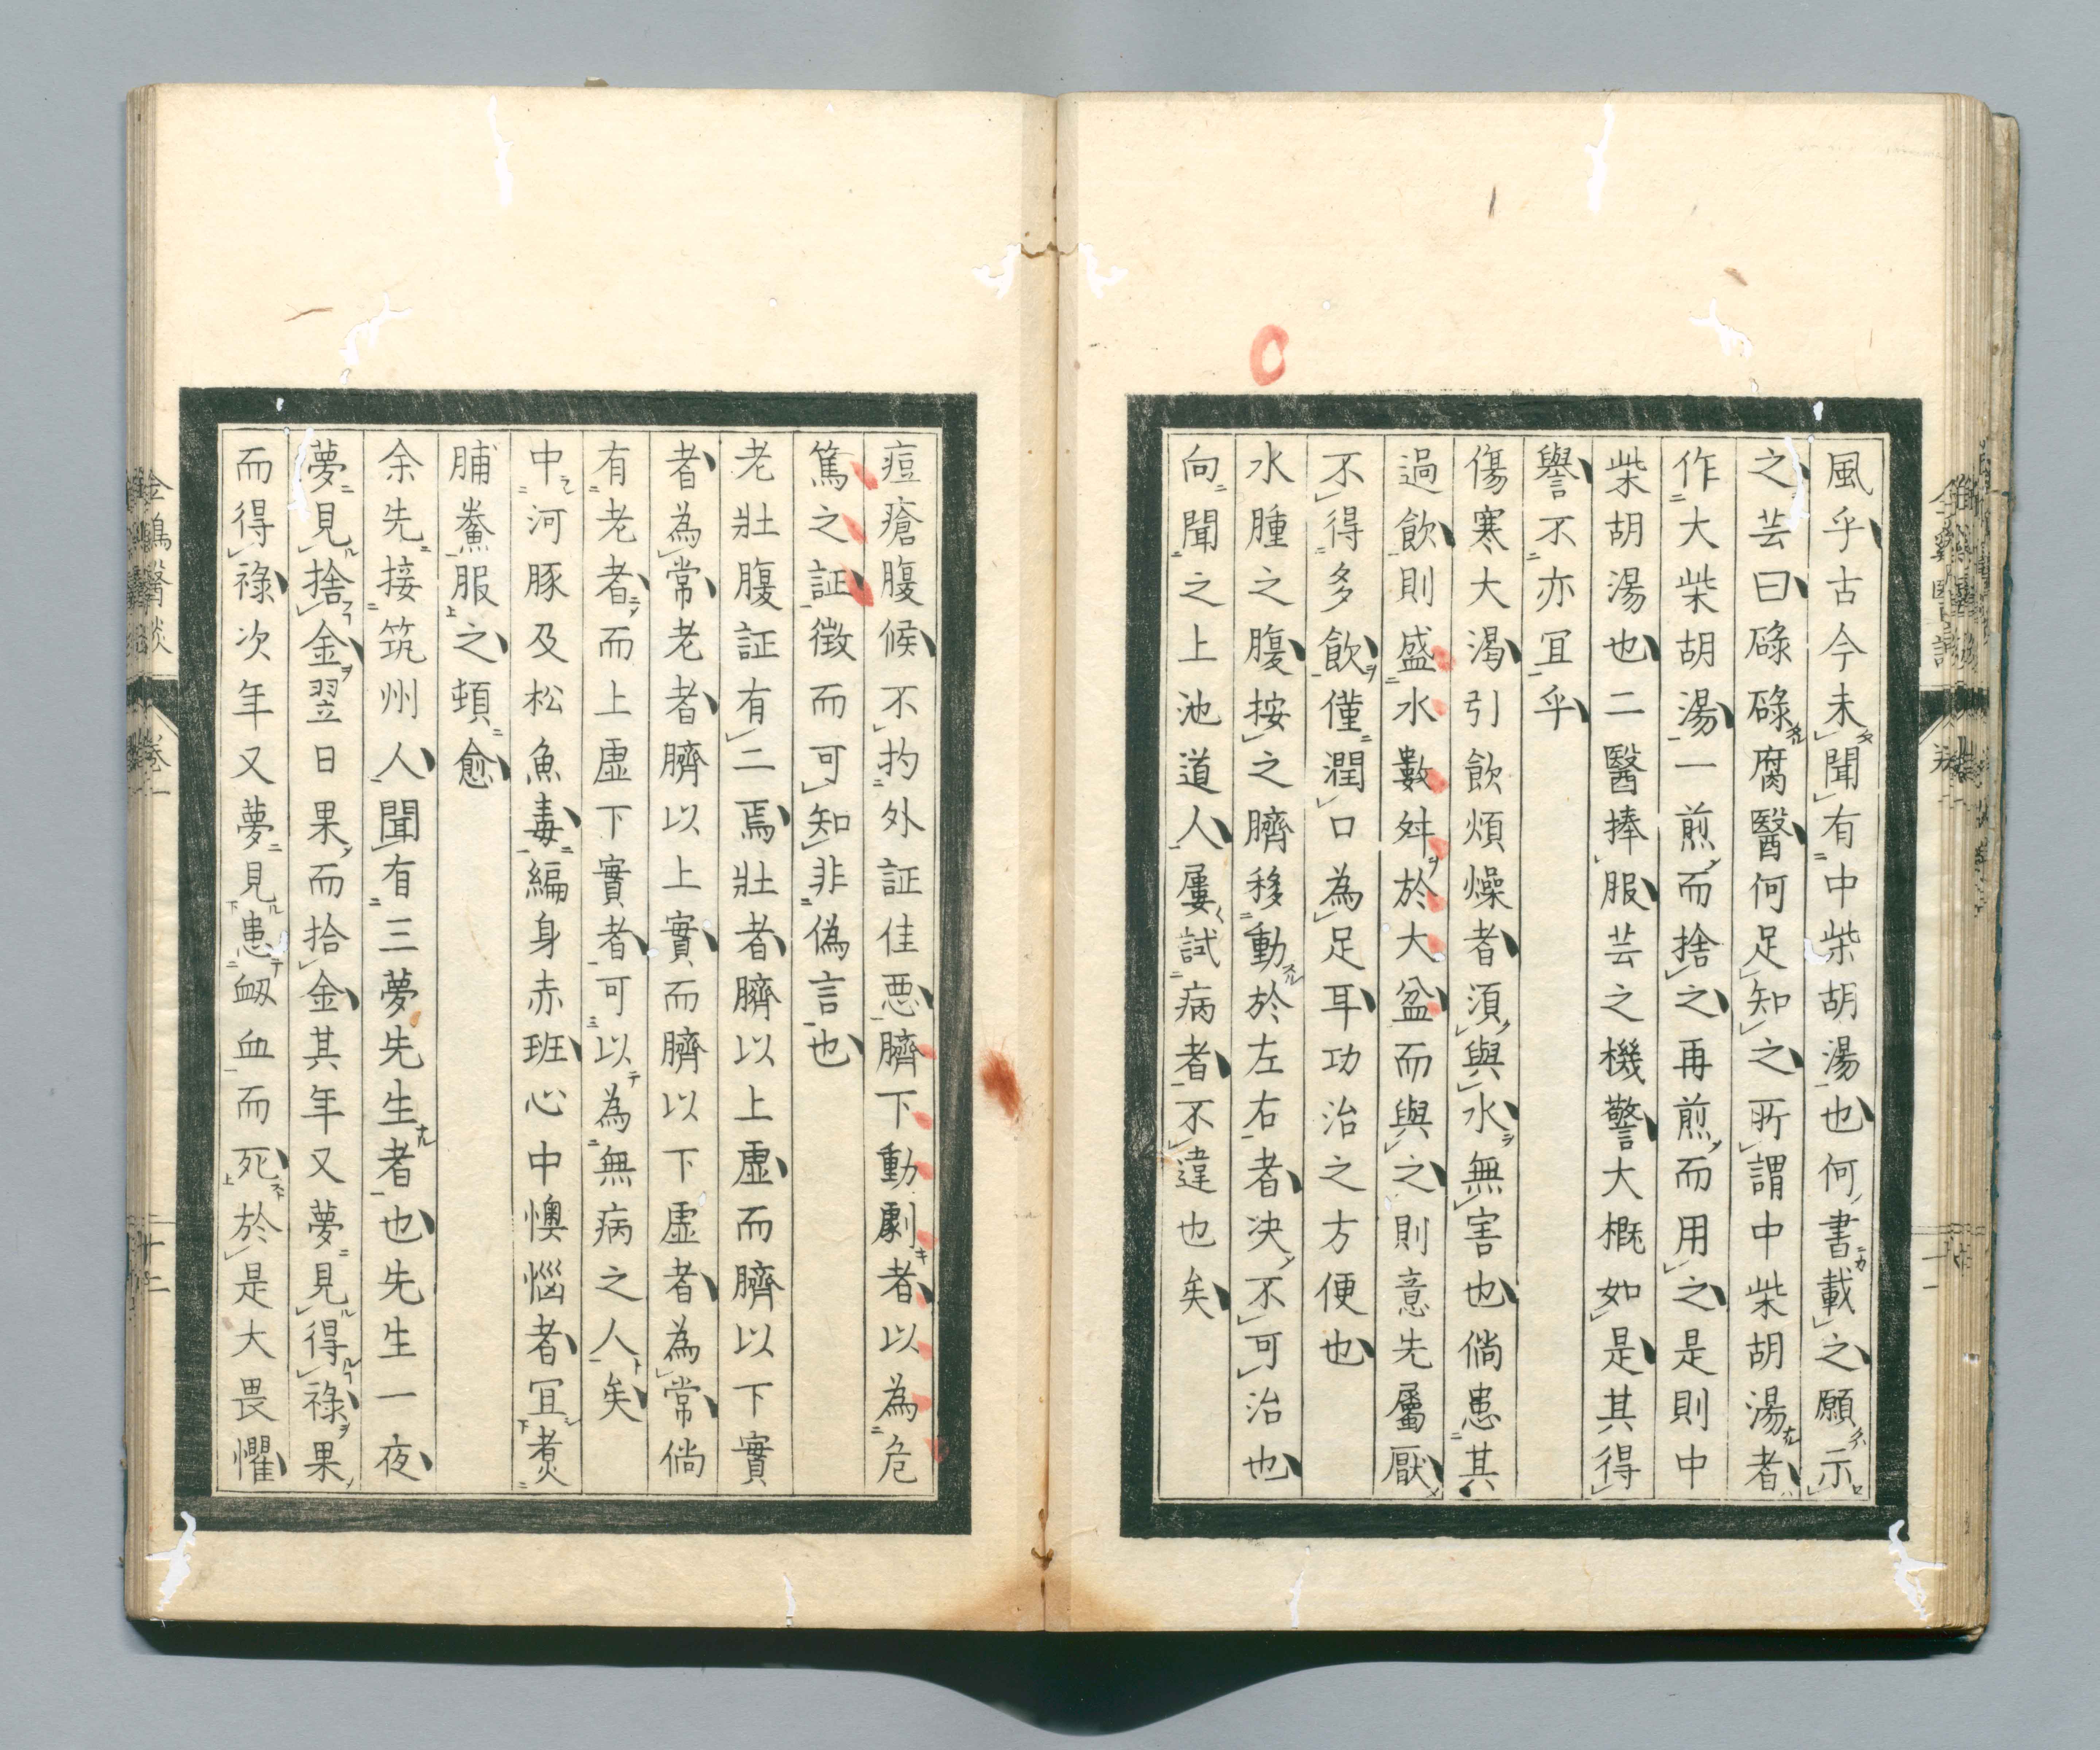 風乎古今未聞有中柴胡湯也何書載之願示
之芸曰碌碌腐醫何足知之所謂中柴胡湯者
作大柴胡湯一煎而捨之再煎而用之是則中
柴胡湯也二醫捧服芸之機警大概如是其得
譽不亦冝乎
傷寒大渴引飲煩燥者湏與水無害也倘患其
過飲則盛水數舛於大盆而與之則意先屬厭
不得多飲僅潤口為足耳功治之方便也
水腫之腹按之臍移動於左右者决不可治也
向聞之上池道人屢試病者不違也矣
痘瘡腹候不抅外証佳惡臍下動劇者以為危
篤之証徴而可知非偽言也
老壯腹証有二焉壯者臍以上虛而臍以下實
者為常老者臍以上實而臍以下虛者為常倘
有老者而上虛下實者可以為無病之人矣
中河豚及松魚毒編身赤班心中懊惱者冝煑
脯鯗服之頓愈
余先接筑州人聞有三夢先生者也先生一夜
夢見捨金翌日果而拾金其年又夢見得祿果
而得祿次年又夢見患衂血而死於是大畏懼